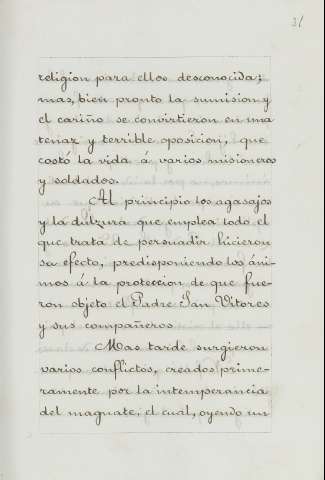 31
religion para ellos desconocida;
mas, bien pronto la sumision y
el cariño se convirtieron en una
tenaz y terrible oposicion, que
costó la vida á varios misioneros
y soldados.
Al principio los agasajos
y la dulzura que emplea todo el
que trata de persuadir hicieron
su efecto, predisponiendo los áni-
mos á la proteccion de que fue-
ron objeto el Padre San Vitores
y sus compañeros.
Mas tarde surgieron
varios conflictos, creados prime-
ramente por la intemperancia
del magnate, el cual, oyendo un